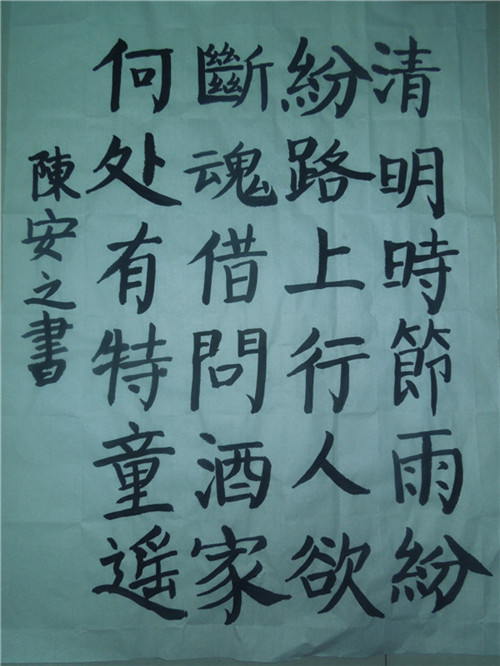 清明時節雨紛
紛路上行人欲
斷魂借問酒家
何处有特童遥
陳安之書